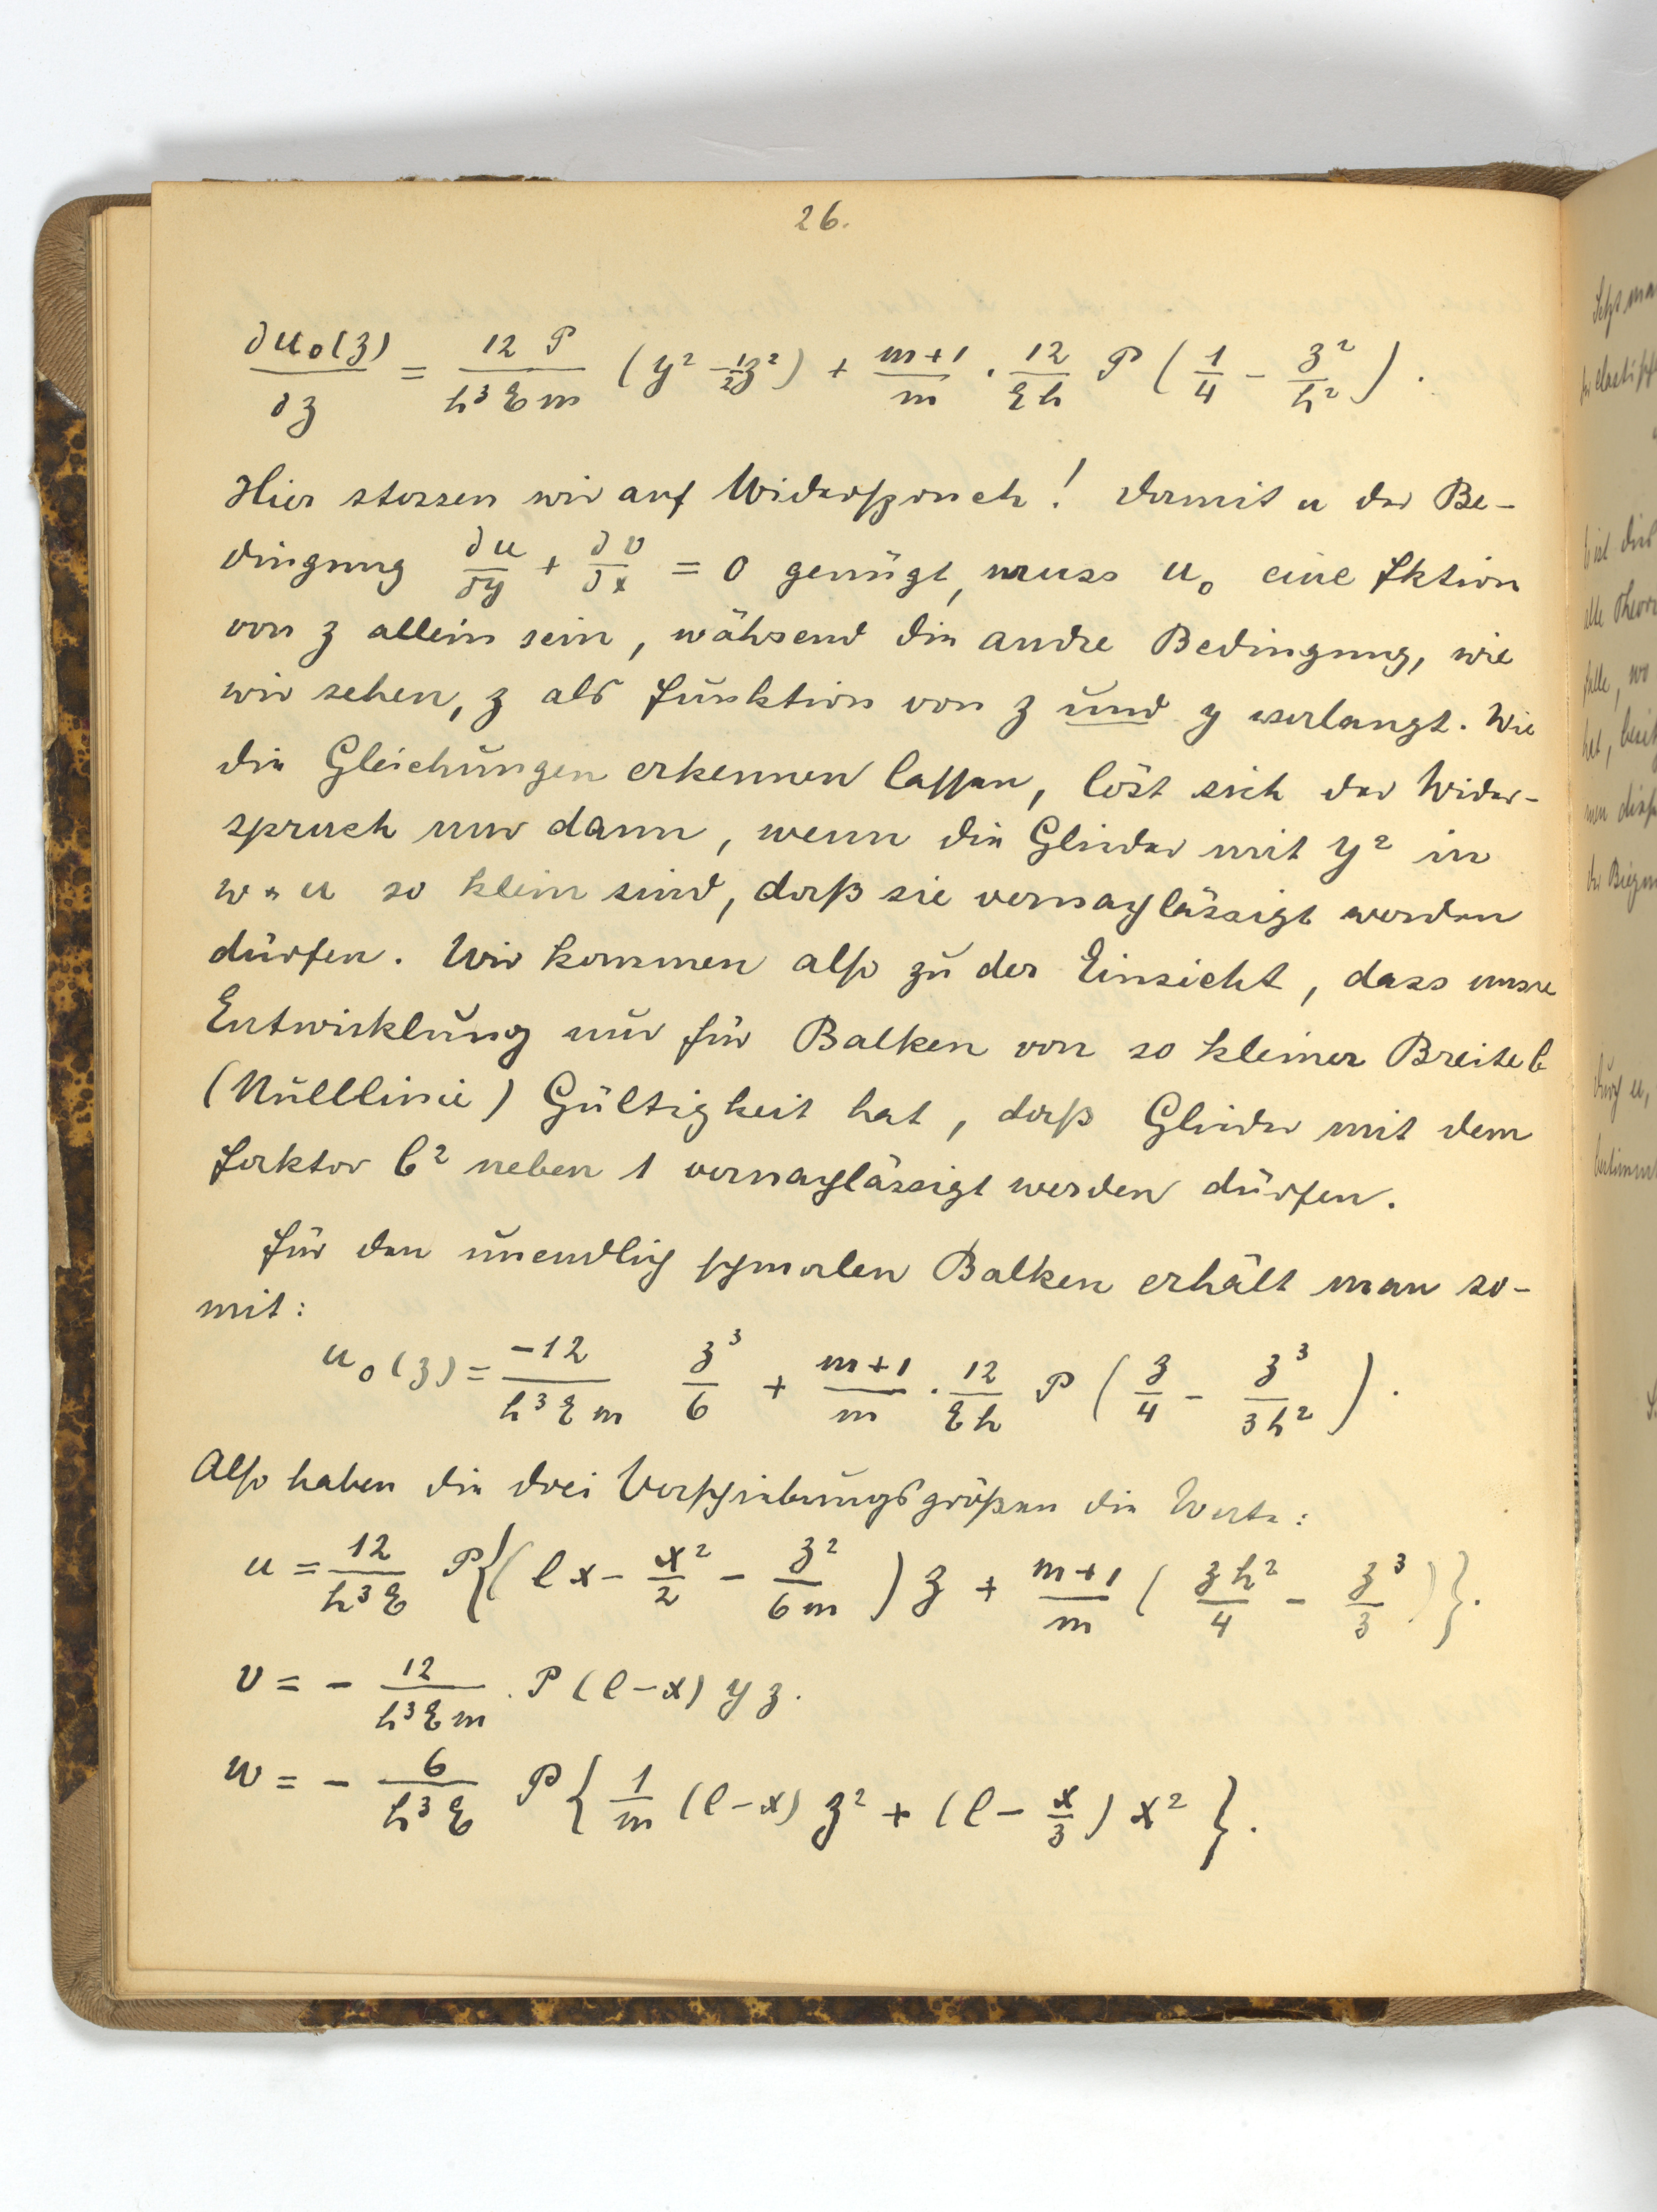 26.
∂u₀(z)/∂z = 12 P/(h³ E m) (y² - ½z²) + (m+1)/m · 12/(E h) P (1/4 - z²/h²).
Hier stossen wir auf Widerspruch! Damit u der Be-
dingung ∂u/∂y + ∂v/∂x = 0 genügt, muss u₀ eine Fktion
von z allein sein, während die andre Bedingung, wie
wir sehen, z als Funktion von z und y verlangt. Wie
die Gleichungen erkennen lassen, löst sich der Wider-
spruch nur dann, wenn die Glieder mit y² in
w u. u so klein sind, daß sie vernachlässigt werden
dürfen. Wir kommen also zu der Einsicht, dass unsre
Entwicklung nur für Balken von so kleiner Breite b
(Nulllinie) Gültigkeit hat, daß Glieder mit dem
Faktor b² neben 1 vernachlässigt werden dürfen.
Für den unendlich schmalen Balken erhält man so-
mit:
u₀(z) = -12/(h³ E m) z³/6 + (m+1)/m · 12/(E h) P (z/4 - z³/(3h²)).
Also haben die drei Verschiebungsgrößen die Werte:
u = 12/(h³ E) P{(lx - x²/2 - z²/(6m)) z + (m+1)/m (zh²/4 - z³/3)}.
v = - 12/(h³ E m) · P (l-x) y z.
w = - 6/(h³ E) P{1/m (l-x) z² + (l - x/3) x²}.
Setzt ma
elastisch
ist dies
alle Theori
Falle, wo
hat, breit
der Biegun
durch u,
bestimmt